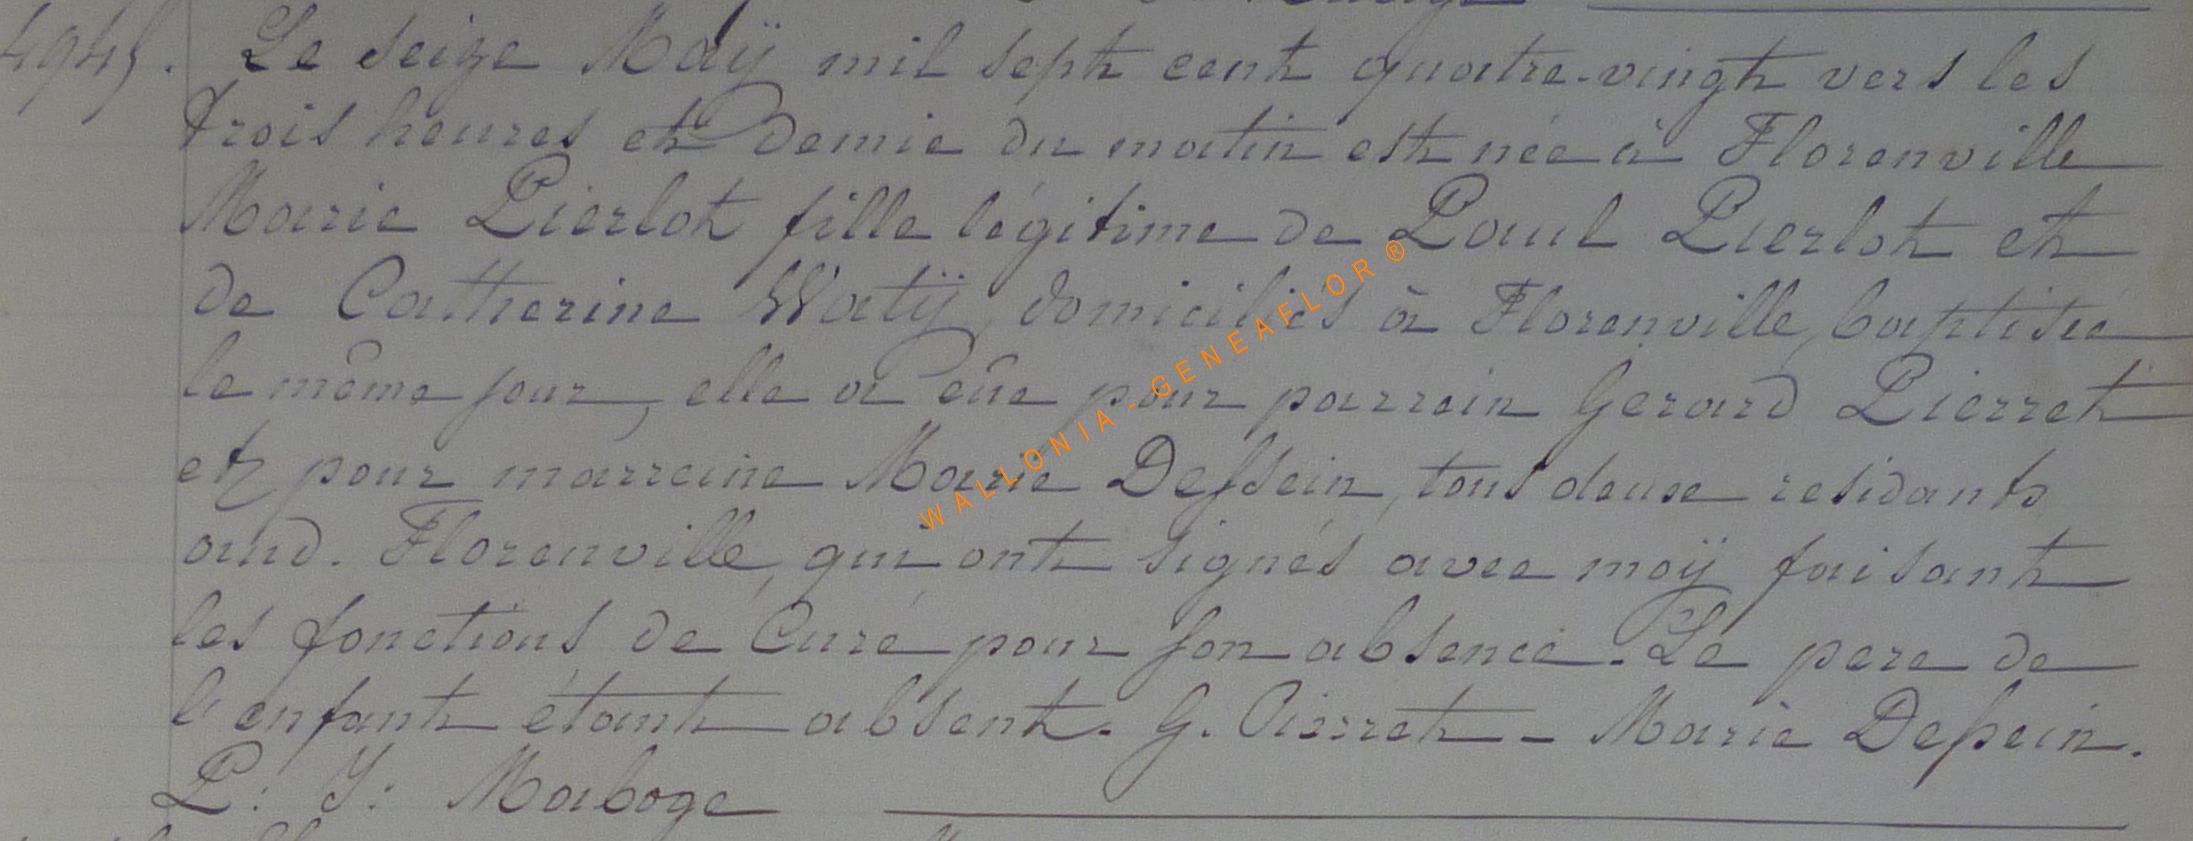 4945. Le seize Maÿ mil sept cent quatre-vingt vers les
trois heures et demie du matin est née à Florenville
Marie Pierlot fille légitime de Paul Pierlot et
de Catherine Watÿ, domiciliés à Florenville, baptisée
le même jour, elle a eûe pour parrein Gerard Pierret
et pour marreine Marie Dessein, tous deuxe residants
aud. Florenville, qui ont signés avec moÿ faisant
les fonctions de Curé pour son absence. Le pere de
l'enfant étant absent. G. Pierret - Marie Dessein.
P: J: Maboge
WALLONIA-GENEAFLOR®